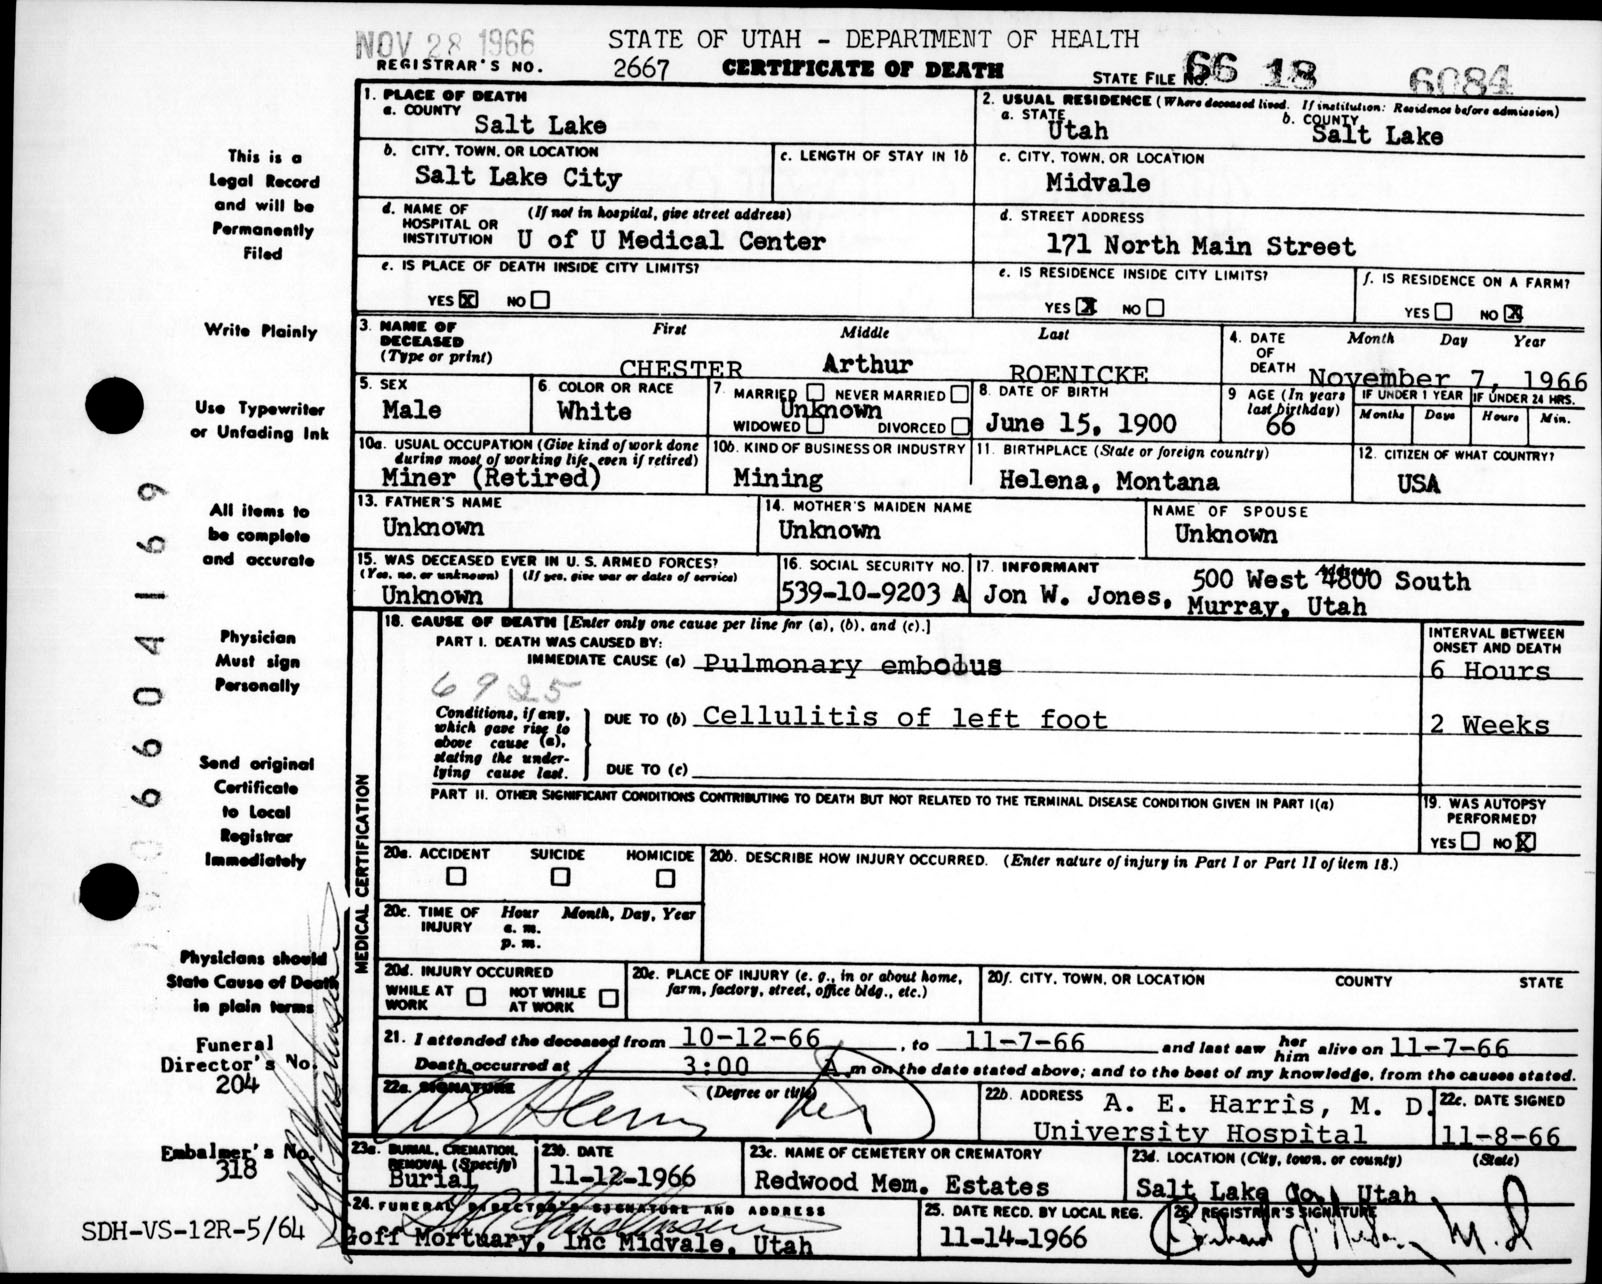 NOV 28 1966
STATE OF UTAH - DEPARTMENT OF HEALTH
REGISTRAR'S NO. 2667 CERTIFICATE OF DEATH STATE FILE NO. 66 18 6084
This is a
Legal Record
and will be
Permanently
Filed
Write Plainly
Use Typewriter
or Unfading Ink
All items to
be complete
and accurate
Physician
Must sign
Personally
Send original
Certificate
to Local
Registrar
Immediately
Physicians should
State Cause of Death
in plain terms
Funeral
Director's No.
204
Embalmer's No.
318
SDH-VS-12R-5/64
660 4169
1. PLACE OF DEATH
a. COUNTY
Salt Lake
2. USUAL RESIDENCE (Where deceased lived. If institution: Residence before admission)
a. STATE
Utah
b. COUNTY
Salt Lake
b. CITY, TOWN, OR LOCATION
Salt Lake City
c. LENGTH OF STAY IN 1b
c. CITY, TOWN, OR LOCATION
Midvale
d. NAME OF HOSPITAL OR INSTITUTION (If not in hospital, give street address)
U of U Medical Center
d. STREET ADDRESS
171 North Main Street
e. IS PLACE OF DEATH INSIDE CITY LIMITS?
YES X NO
e. IS RESIDENCE INSIDE CITY LIMITS?
YES X NO
f. IS RESIDENCE ON A FARM?
YES NO X
3. NAME OF DECEASED (Type or print)
First Middle Last
CHESTER Arthur ROENICKE
4. DATE OF DEATH
Month Day Year
November 7, 1966
5. SEX
Male
6. COLOR OR RACE
White
7. MARRIED NEVER MARRIED
Unknown
WIDOWED DIVORCED
8. DATE OF BIRTH
June 15, 1900
9 AGE (In years last birthday)
66
IF UNDER 1 YEAR
Months Days
IF UNDER 24 HRS.
Hours Min.
10a. USUAL OCCUPATION (Give kind of work done during most of working life, even if retired)
Miner (Retired)
10b. KIND OF BUSINESS OR INDUSTRY
Mining
11. BIRTHPLACE (State or foreign country)
Helena, Montana
12. CITIZEN OF WHAT COUNTRY?
USA
13. FATHER'S NAME
Unknown
14. MOTHER'S MAIDEN NAME
Unknown
NAME OF SPOUSE
Unknown
15. WAS DECEASED EVER IN U.S. ARMED FORCES?
(Yes, no, or unknown) (If yes, give war or dates of service)
Unknown
16. SOCIAL SECURITY NO.
539-10-9203 A
17. INFORMANT Address
Jon W. Jones, 500 West 4800 South
Murray, Utah
MEDICAL CERTIFICATION
18. CAUSE OF DEATH [Enter only one cause per line for (a), (b), and (c).]
PART I. DEATH WAS CAUSED BY:
IMMEDIATE CAUSE (a) Pulmonary embolus
6925
Conditions, if any, which gave rise to above cause (a), stating the underlying cause last.
DUE TO (b) Cellulitis of left foot
DUE TO (c)
INTERVAL BETWEEN ONSET AND DEATH
6 Hours
2 Weeks
PART II. OTHER SIGNIFICANT CONDITIONS CONTRIBUTING TO DEATH BUT NOT RELATED TO THE TERMINAL DISEASE CONDITION GIVEN IN PART I(a)
19. WAS AUTOPSY PERFORMED?
YES NO X
20a. ACCIDENT SUICIDE HOMICIDE
20b. DESCRIBE HOW INJURY OCCURRED. (Enter nature of injury in Part I or Part II of item 18.)
20c. TIME OF INJURY
Hour Month, Day, Year
a. m.
p. m.
20d. INJURY OCCURRED
WHILE AT WORK NOT WHILE AT WORK
20e. PLACE OF INJURY (e. g., in or about home, farm, factory, street, office bldg., etc.)
20f. CITY, TOWN, OR LOCATION COUNTY STATE
21. I attended the deceased from 10-12-66, to 11-7-66 and last saw her him alive on 11-7-66
Death occurred at 3:00 A m on the date stated above; and to the best of my knowledge, from the causes stated.
22a. SIGNATURE (Degree or title)
22b. ADDRESS
A. E. Harris, M. D.
University Hospital
22c. DATE SIGNED
11-8-66
23a. BURIAL, CREMATION, REMOVAL (Specify)
Burial
23b. DATE
11-12-1966
23c. NAME OF CEMETERY OR CREMATORY
Redwood Mem. Estates
23d. LOCATION (City, town, or county) (State)
Salt Lake Co., Utah
24. FUNERAL DIRECTOR'S SIGNATURE AND ADDRESS
Goff Mortuary, Inc Midvale, Utah
25. DATE RECD. BY LOCAL REG.
11-14-1966
26. REGISTRAR'S SIGNATURE